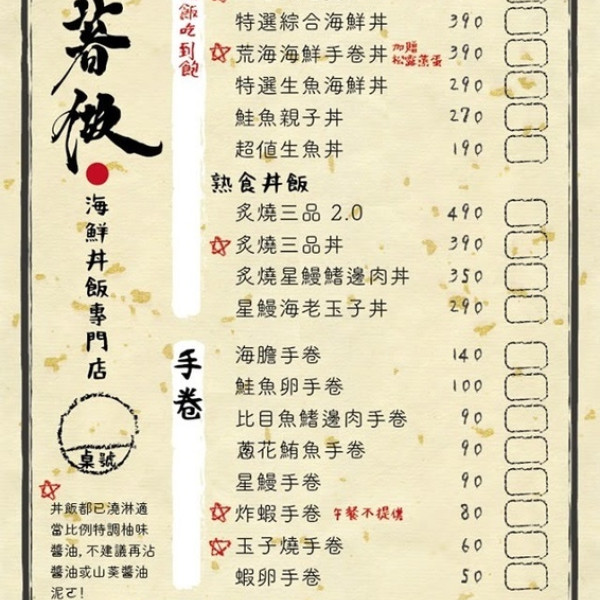 著
微
海鮮丼飯專門店
桌號
丼飯都已澆淋適
當比例特調柚味
醬油,不建議再沾
醬油或山葵醬油
泥ㄛ!
飯吃到飽
特選綜合海鮮丼 390
荒海海鮮手卷丼 加贈松露蒸蛋 390
特選生魚海鮮丼 290
鮭魚親子丼 270
超值生魚丼 190
熟食丼飯
炙燒三品 2.0 490
炙燒三品丼 390
炙燒星鰻鰭邊肉丼 350
星鰻海老玉子丼 290
手卷
海膽手卷 140
鮭魚卵手卷 100
比目魚鰭邊肉手卷 90
蔥花鮪魚手卷 90
星鰻手卷 90
炸蝦手卷 午餐不提供 80
玉子燒手卷 60
蝦卵手卷 50